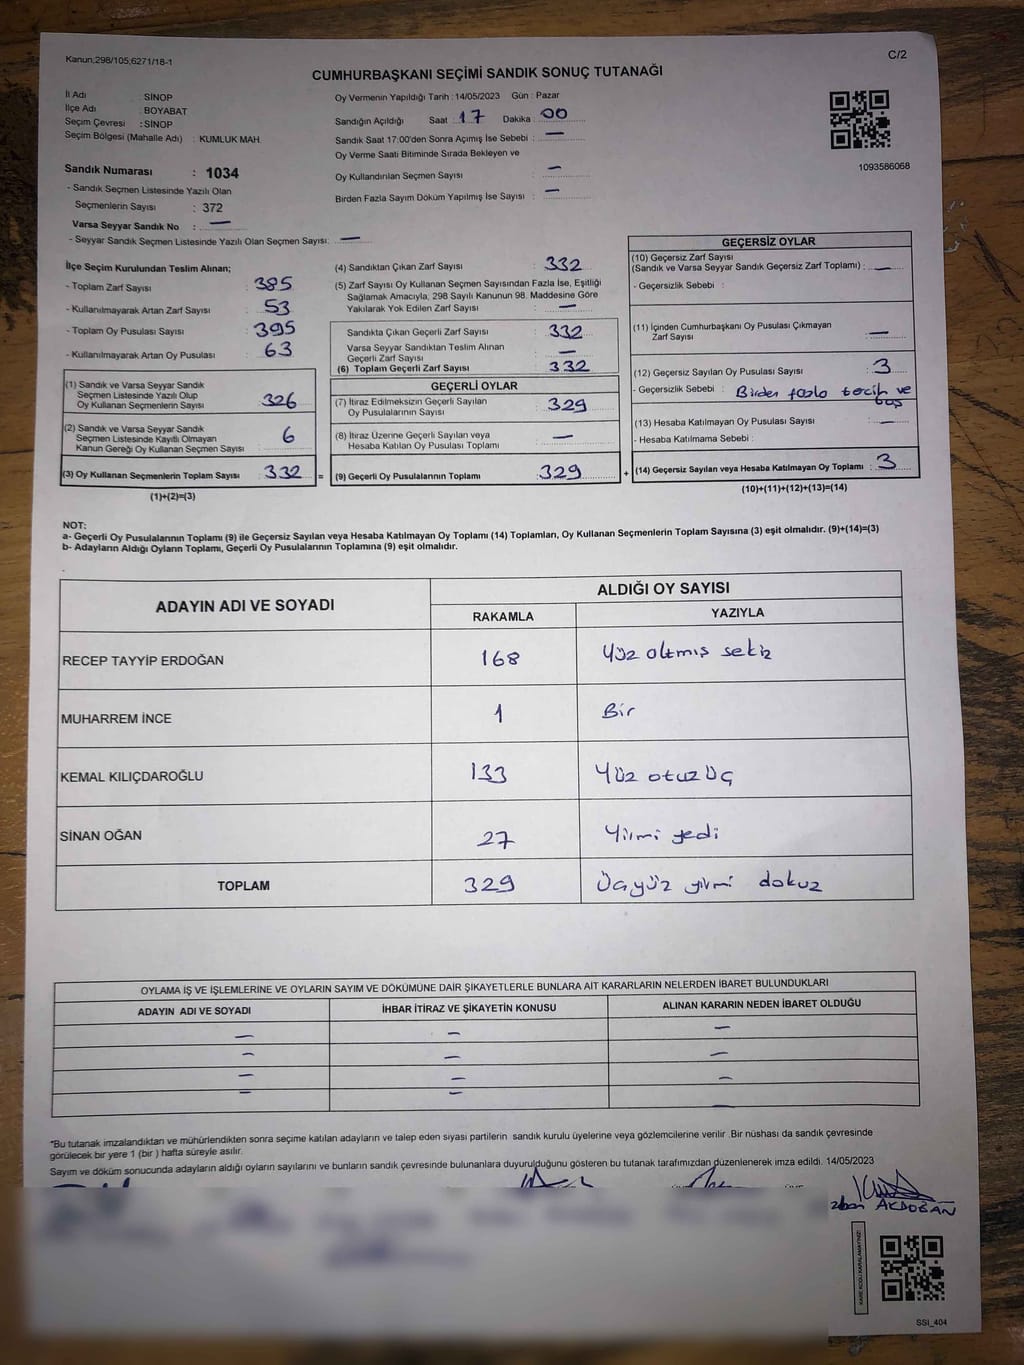 Kanun;298/105,6271/18-1
C/2
CUMHURBAŞKANI SEÇİMİ SANDIK SONUÇ TUTANAĞI
İl Adı : SİNOP
İlçe Adı : BOYABAT
Seçim Çevresi : SİNOP
Seçim Bölgesi (Mahalle Adı) : KUMLUK MAH.
Oy Vermenin Yapıldığı Tarih : 14/05/2023 Gün : Pazar
Sandığın Açıldığı Saat : 17 Dakika 00
Sandık Saat 17:00'den Sonra Açımış İse Sebebi : —
Oy Verme Saati Bitiminde Sırada Bekleyen ve
Oy Kullandırılan Seçmen Sayısı : —
Birden Fazla Sayım Döküm Yapılmış İse Sayısı : —
1093586068
Sandık Numarası : 1034
- Sandık Seçmen Listesinde Yazılı Olan
Seçmenlerin Sayısı : 372
Varsa Seyyar Sandık No : —
- Seyyar Sandık Seçmen Listesinde Yazılı Olan Seçmen Sayısı: —
İlçe Seçim Kurulundan Teslim Alınan;
- Toplam Zarf Sayısı : 385
- Kullanılmayarak Artan Zarf Sayısı : 53
- Toplam Oy Pusulası Sayısı : 395
- Kullanılmayarak Artan Oy Pusulası : 63
(1) Sandık ve Varsa Seyyar Sandık
Seçmen Listesinde Yazılı Olup
Oy Kullanan Seçmenlerin Sayısı : 326
(2) Sandık ve Varsa Seyyar Sandık
Seçmen Listesinde Kayıtlı Olmayan
Kanun Gereği Oy Kullanan Seçmen Sayısı : 6
(3) Oy Kullanan Seçmenlerin Toplam Sayısı : 332 =
(1)+(2)=(3)
(4) Sandıktan Çıkan Zarf Sayısı : 332
(5) Zarf Sayısı Oy Kullanan Seçmen Sayısından Fazla İse, Eşitliği
Sağlamak Amacıyla, 298 Sayılı Kanunun 98. Maddesine Göre
Yakılarak Yok Edilen Zarf Sayısı : —
Sandıkta Çıkan Geçerli Zarf Sayısı : 332
Varsa Seyyar Sandıktan Teslim Alınan
Geçerli Zarf Sayısı : —
(6) Toplam Geçerli Zarf Sayısı : 332
GEÇERLİ OYLAR
(7) İtiraz Edilmeksizin Geçerli Sayılan
Oy Pusulalarının Sayısı : 329
(8) İtiraz Üzerine Geçerli Sayılan veya
Hesaba Katılan Oy Pusulası Toplamı : —
(9) Geçerli Oy Pusulalarının Toplamı : 329 +
GEÇERSİZ OYLAR
(10) Geçersiz Zarf Sayısı
(Sandık ve Varsa Seyyar Sandık Geçersiz Zarf Toplamı) : —
- Geçersizlik Sebebi :
(11) İçinden Cumhurbaşkanı Oy Pusulası Çıkmayan
Zarf Sayısı : —
(12) Geçersiz Sayılan Oy Pusulası Sayısı : 3
- Geçersizlik Sebebi : Birden fazla tercih ve
boş
(13) Hesaba Katılmayan Oy Pusulası Sayısı : —
- Hesaba Katılmama Sebebi :
(14) Geçersiz Sayılan veya Hesaba Katılmayan Oy Toplamı : 3
(10)+(11)+(12)+(13)=(14)
NOT:
a- Geçerli Oy Pusulalarının Toplamı (9) ile Geçersiz Sayılan veya Hesaba Katılmayan Oy Toplamı (14) Toplamları, Oy Kullanan Seçmenlerin Toplam Sayısına (3) eşit olmalıdır. (9)+(14)=(3)
b- Adayların Aldığı Oyların Toplamı, Geçerli Oy Pusulalarının Toplamına (9) eşit olmalıdır.
ADAYIN ADI VE SOYADI ALDIĞI OY SAYISI
RAKAMLA YAZIYLA
RECEP TAYYİP ERDOĞAN 168 Yüz altmış sekiz
MUHARREM İNCE 1 Bir
KEMAL KILIÇDAROĞLU 133 Yüz otuz üç
SİNAN OĞAN 27 Yirmi yedi
TOPLAM 329 Üçyüz yirmi dokuz
OYLAMA İŞ VE İŞLEMLERİNE VE OYLARIN SAYIM VE DÖKÜMÜNE DAİR ŞİKAYETLERLE BUNLARA AİT KARARLARIN NELERDEN İBARET BULUNDUKLARI
ADAYIN ADI VE SOYADI İHBAR İTİRAZ VE ŞİKAYETİN KONUSU ALINAN KARARIN NEDEN İBARET OLDUĞU
— — —
— — —
— — —
— — —
*Bu tutanak imzalandıktan ve mühürlendikten sonra seçime katılan adayların ve talep eden siyasi partilerin sandık kurulu üyelerine veya gözlemcilerine verilir .Bir nüshası da sandık çevresinde
görülecek bir yere 1 (bir ) hafta süreyle asılır.
Sayım ve döküm sonucunda adayların aldığı oyların sayılarını ve bunların sandık çevresinde bulunanlara duyurulduğunu gösteren bu tutanak tarafımızdan düzenlenerek imza edildi. 14/05/2023
AKDOĞAN
KARE KODU KARALAMAYINIZ!
SSI_404